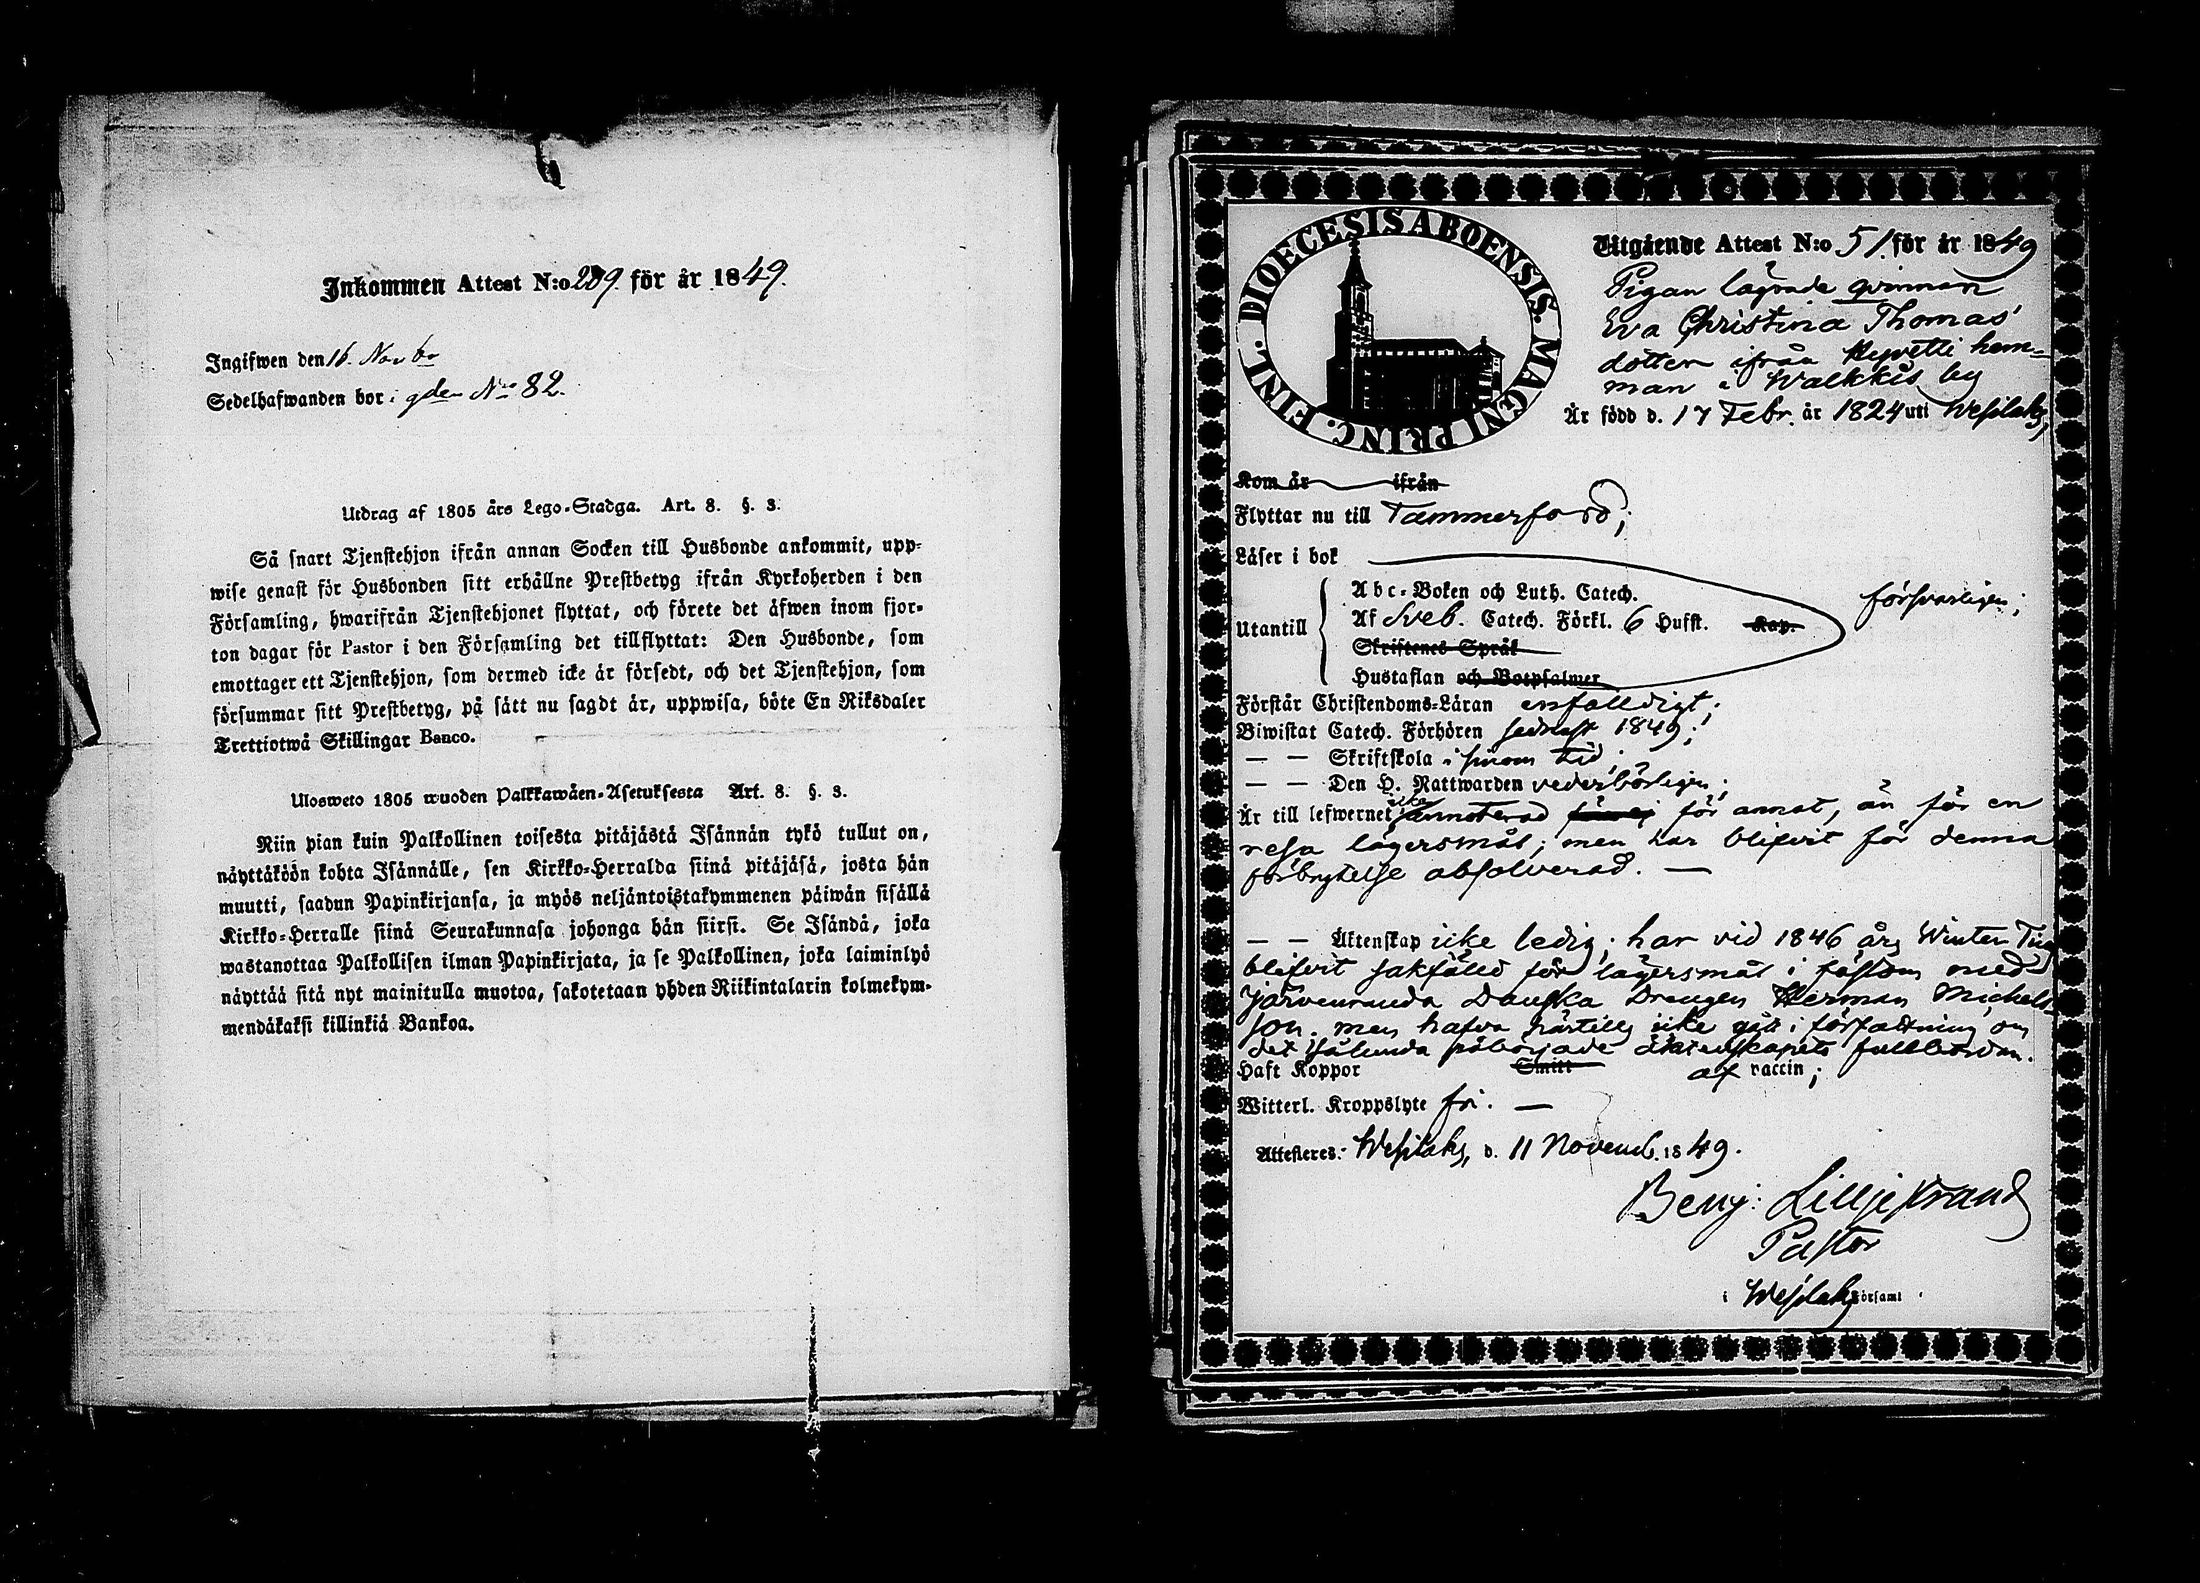 Inkommen Attest N:o 289. för år 1849.
Ingifwen den 16. Novbr
Sedelhafwanden bor i gden No 82.
Utdrag af 1805 års Lego-Stadga. Art. 8. §. 3.
Så snart Tjenstehjon ifrån annan Socken till Husbonde ankommit, upp-
wise genast för Husbonden sitt erhållne Prestbetyg ifrån Kyrkoherden i den
Församling, hwarifrån Tjenstehjonet flyttat, och förete det äfwen inom fjor-
ton dagar för Pastor i den Församling det tillflyttat: Den Husbonde, som
emottager ett Tjenstehjon, som dermed icke är försedt, och det Tjenstehjon, som
försummar sitt Prestbetyg, på sätt nu sagdt är, uppwisa, böte En Riksdaler
Trettiotwå Skillingar Banco.
Ulosweto 1805 wuoden Palkkawäen-Asetuksesta Art. 8. §. 3.
Niin pian kuin Palkollinen toisesta pitäjästä Isännän tykö tullut on,
näyttäköön kohta Isännälle, sen Kirkko-Herralda siinä pitäjäsä, josta hän
muutti, saadun Papinkirjansa, ja myös neljäntoistakymmenen päiwän sisällä
Kirkko-Herralle siinä Seurakunnasa johonga hän siirsi. Se Isändä, joka
wastanottaa Palkollisen ilman Papinkirjata, ja se Palkollinen, joka laiminlyö
näyttää sitä nyt mainitulla muotoa, sakotetaan yhden Riikintalarin kolmekym-
mendäkaksi killinkiä Bankoa.
DIOECESIS ABOENSIS. MAGNI PRINC. FINL.
Utgående Attest N:o 51. för år 1849
Pigan lägrade qvinnan
Eva Christina Thomas
dotter ifrån Hyvetti hem-
man i Walkkis by
Är född d. 17 Febr. år 1824 uti Wesilaks,
Kom år ifrån
Flyttar nu till Tammerfors;
Läser i bok
Abc-Boken och Luth. Catech.
Utantill Af Sveb. Catech. Förkl. 6 Hufst. Kap. försvarligen;
Skriftenes Språk
Hustaflan och Botpsalmer
Förstår Christendoms-Läran enfalldigt;
Biwistat Catech. Förhören sednast 1849;
— — Skriftskola i sinom tid;
— — Den H. Nattwarden vederbörligen;
Är till lefwernet icke annoterad för annat, än för en
resa lägersmål; men har blifvit för denna
förbrytelse absolverad. —
— — Äktenskap icke ledig; har vid 1846 års Winter Ting
blifvit sakfälld för lägersmål i fästom med
Järvenranda Dauska Drengen Herman Michels-
son. men hafva härtills icke gått i författning om
det sålunda påbörjade äktenskapets fullbordan.
Haft Koppor Smitt af vaccin;
Witterl. Kroppslyte fri. —
Attesteres. Wesilaks, d. 11 Novemb. 1849.
Benj: Lilljestrand
Pastor
i Wesilaks Församl.